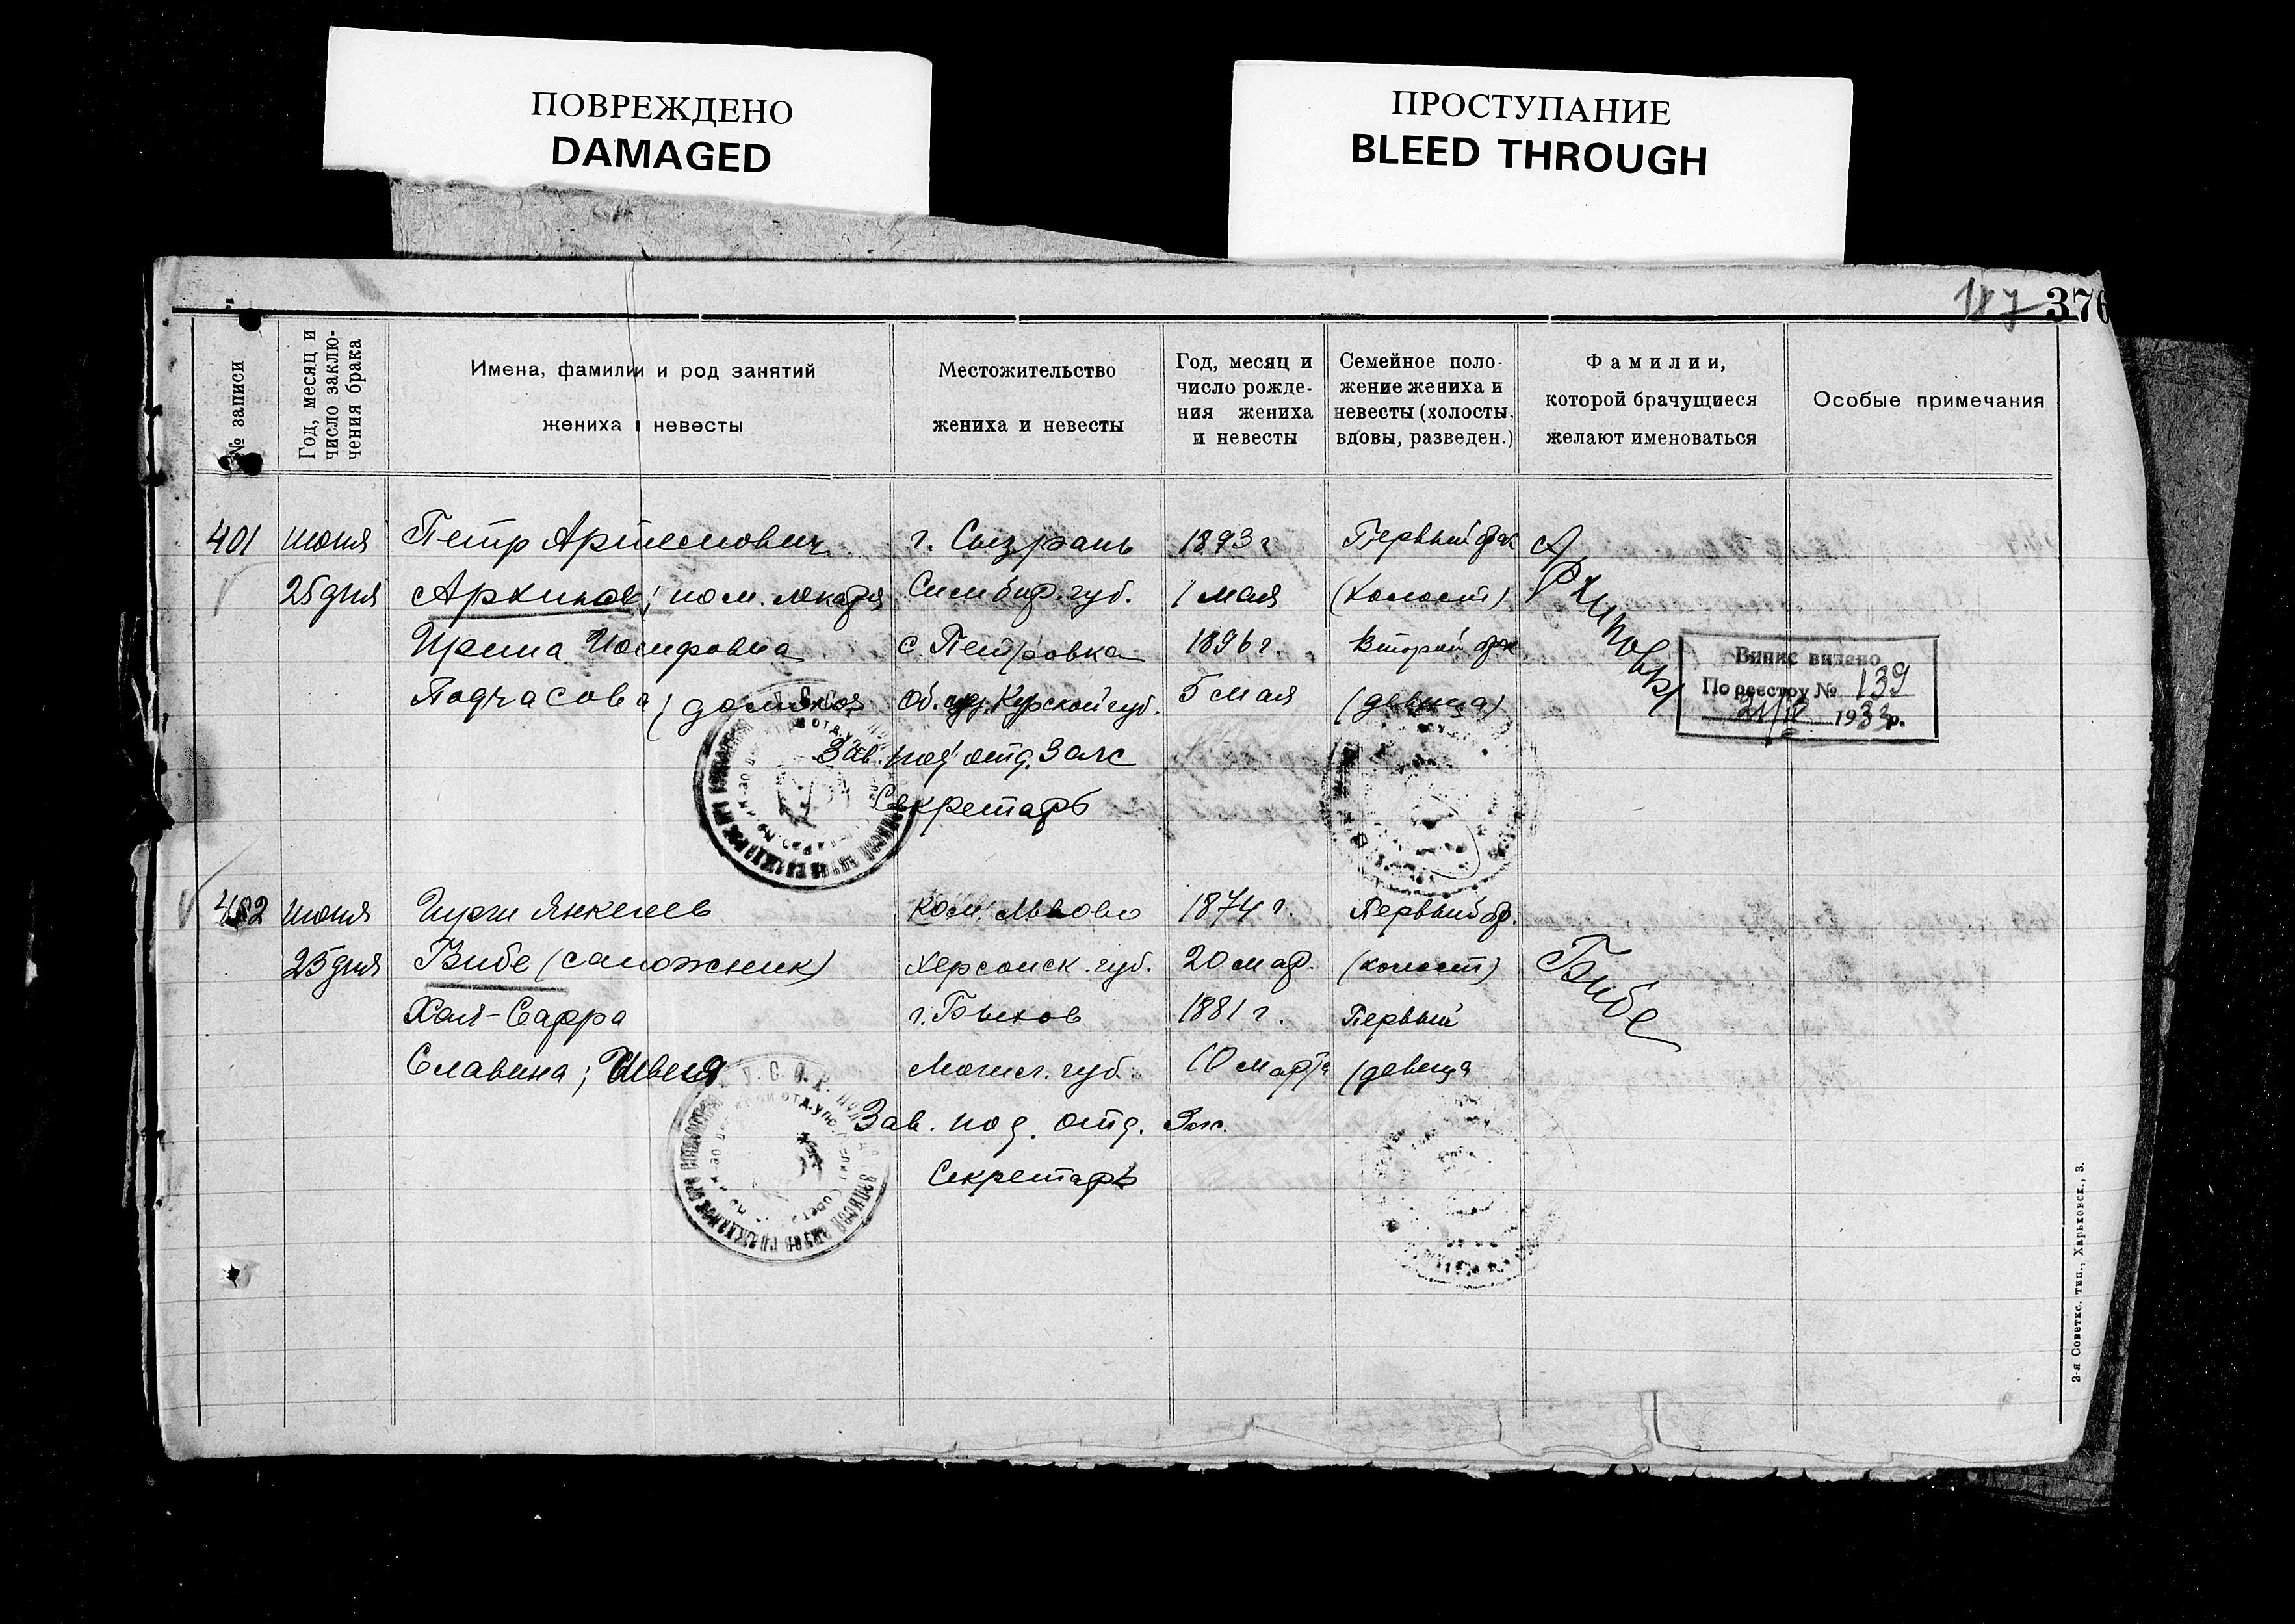 ПОВРЕЖДЕНО
DAMAGED
ПРОСТУПАНИЕ
BLEED THROUGH
187 376
№ записи
Год, месяц и
число заклю-
чения брака
Имена, фамилии и род занятий
жениха и невесты
Местожительство
жениха и невесты
Год, месяц и
число рожде-
ния жениха
и невесты
Семейное поло-
жение жениха и
невесты (холосты,
вдовы, разведен.)
Фамилии,
которой брачущиеся
желают именоваться
Особые примечания
401 июня Петр Артемович г. Сызрань 1893 г Первый брак
25 дня Архипов; пом. лекаря Симбир. губ. 1 мая (холост) Архиповы
Ирина Иосифовна с. Петровка 1896 г. Второй брак
Подчасова; Об. Курской губ. 5 мая (девица)
Випис видано
По реестру № 139
21/IV 1933р.
Зав. под отд. Загс
Секретарь
402 июня Гирш Янкелев кол. Львово 1874 г. Первый бр.
25 дня Бибе (сапожник) Херсонск. губ. 20 мар. (холост) Бибе
Хая-Сарра г. Быхов 1881 г. Первый
Славина; Швея Могил. губ. 10 марта (девица
Зав. под. отд. Загс.
Секретарь
2-я Советск. тип., Харьковск., 3.